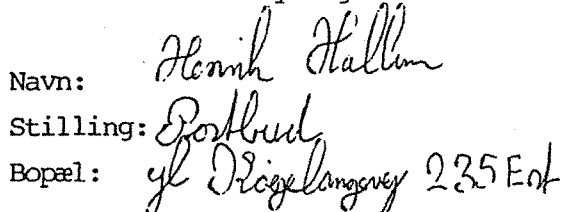 Navn: Henrik Hallim
Stilling: Postbud
Bopæl: gl Køgelangevej 235 Ent